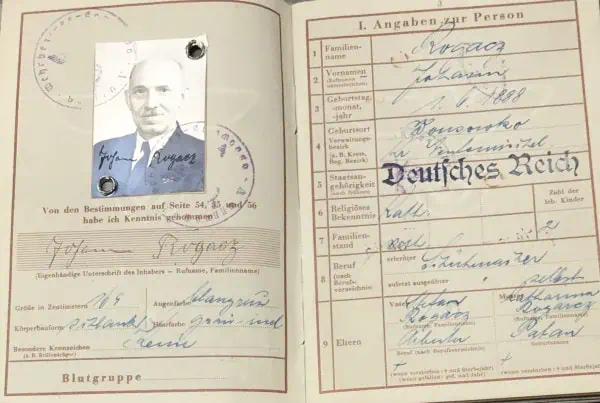 Johann Rogacz
Von den Bestimmungen auf Seite 54, 55 und 56
habe ich Kenntnis genommen
Johann Rogacz
(Eigenhändige Unterschrift des Inhabers — Rufname, Familienname)
Größe in Zentimetern 169 Augenfarbe blaugrün
Körperbauform schlank Haarfarbe grau
Besondere Kennzeichen
(z. B. Brillenträger) keine
Blutgruppe
3
I. Angaben zur Person
1 Familien-
name Rogacz
2 Vornamen
(Rufnamen
unterstreichen) Johann
3 Geburtstag,
-monat,
-jahr 1888
4 Geburtsort
Verwaltungs-
bezirk
(z. B. Kreis,
Reg. Bezirk)
5 Staatsan-
gehörigkeit
(auch frühere) Deutsches Reich
6 Religiöses
Bekenntnis kath.
Zahl der
leb. Kinder
7 Familien-
stand 2
8 Beruf
(nach
Berufs-
verzeichnis)
erlernter
zuletzt ausgeübter selbst
9 Eltern
Vater Stefan
Rogacz
(Rufname, Familienname)
Mutter Katharina
Rogacz
(Rufname, Familienname)
Beruf (nach Berufsverzeichnis)
(wenn verstorben: † und Sterbejahr)
(wenn gefallen: gef. und Jahr)
(wenn verstorben: † und Sterbejahr)